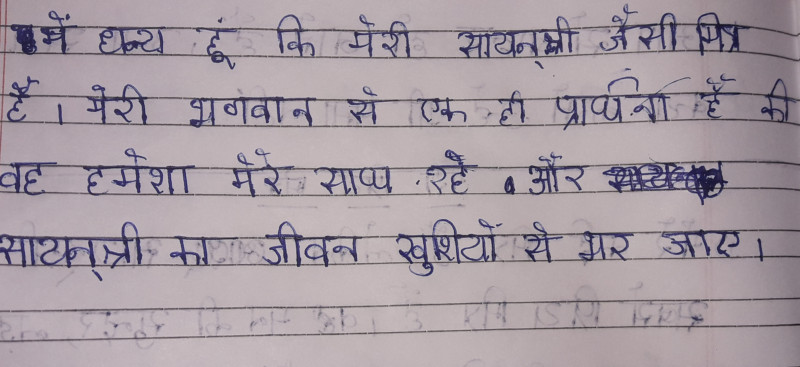 में धन्य हूं कि मेरी सायन्त्री जैसी मित्र
हैं। मेरी भगवान से एक ही प्रार्थना हैं की
वह हमेशा मेरे साथ रहे और
सायन्त्री का जीवन खुशियों से भर जाए।